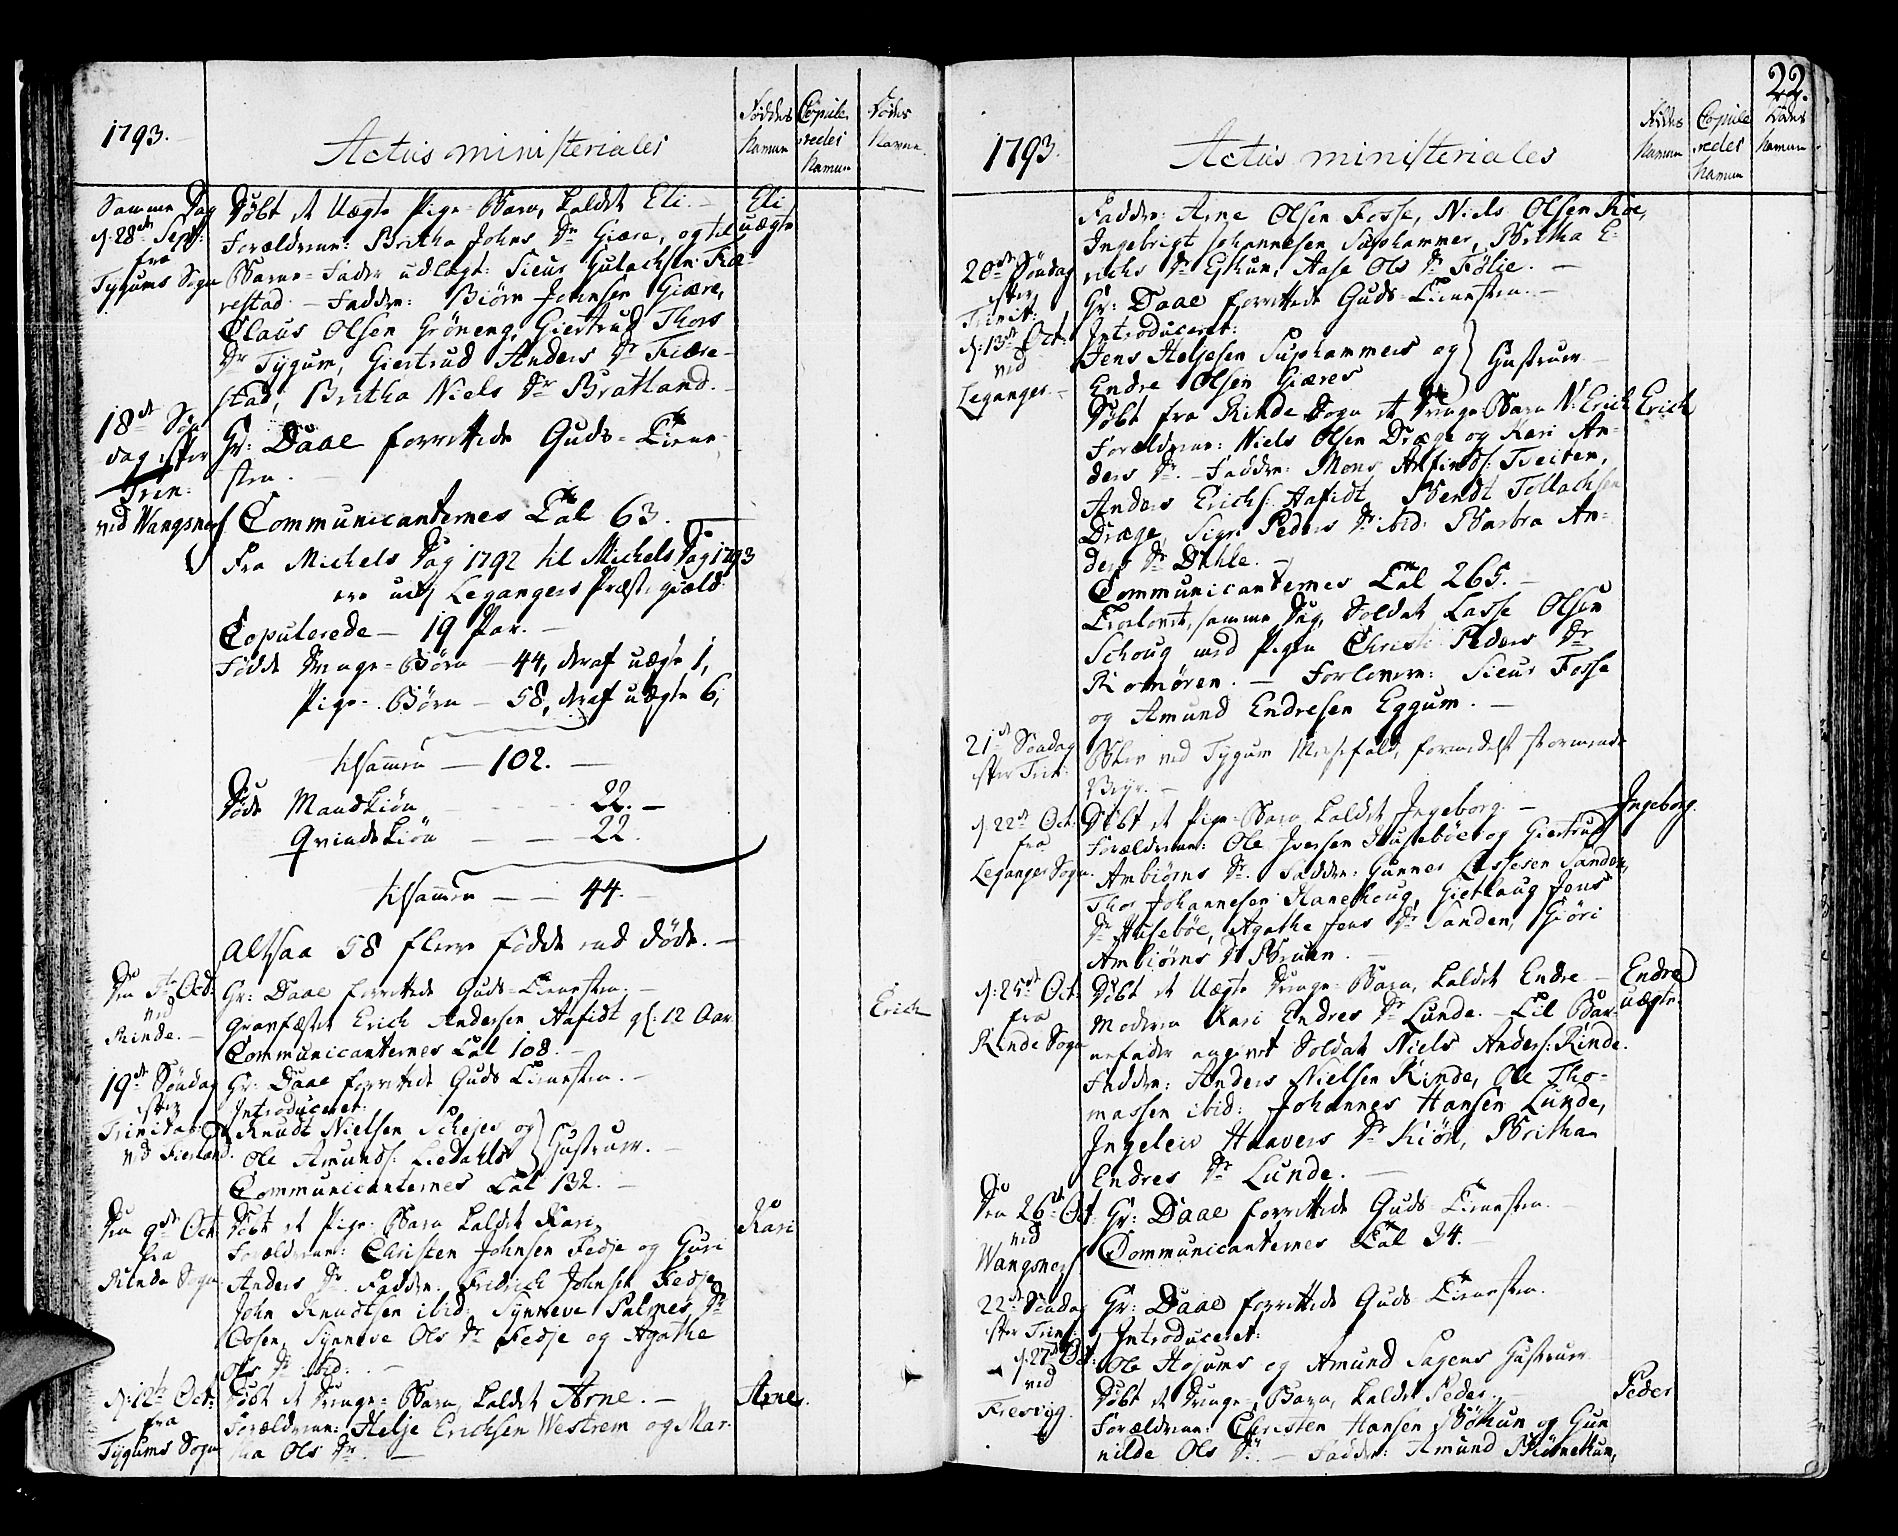 1793.
Actus ministeriales
Føddes Namn
Copuleredes Namn
Dødes Navne.
Samme Dag
d: 28de Sept:
fra
Tygums Sogn
Døbt et Uægte Pige-Barn, kaldet Eli. –
Eli
uægte
Forældrene: Britha Johns Dr Giære, og til
Barne-Fader udlagt: Sieur Gulachsen Fiæ-
restad. – Faddre: Biørn Johnsen Giære,
Claus Olsen Grøneng, Giertrud Thors
Dr Tygum, Giertrud Anders Dr Fiære-
stad, Britha Niels Dr Bratland. –
18de Søn
dag efter
Trin:
ved Wangsnes
Hr: Daae forrettede Guds-Tiene-
sten. –
Communicanternes Tal 63.
Fra Michels Dag 1792 til Michels Dag 1793
ere udj Legangers Præste-giæld
Copulerede – 19 Par. –
Fødde Drenge-Børn – 44, deraf uægte 1,
Pige-Børn – 58, deraf uægte 6,
tilsammen – 102. –
Døde Mandkiøn – 22. –
Qvindekiøn – – 22.
tilsammen – – 44. –
Altsaa 58 flere fødde end døde. –
Den Oct.
ved
Rinde. –
Hr: Daae forrettede Guds-Tienesten. –
Gravfæstet Erich Andersen Aafidt gl: 12 Aar
Erich
Communicanternes Tal 108. –
19de Søndag
efter
Trinitat:
ved Fierland.
Hr: Daae forrettede Guds Tienesten. –
Introduceret:
Knudt Nielsen Skeses og
Ole Amunds: Liedahls
Hustruer. –
Communicanternes Tal 132. –
Den 9de Oct.
fra
Rinde Sogn
Døbt et Pige-Barn kaldet Kari
Kari
Forældrene: Christen Johnsen Fedje og Guri
Anders Dr. Faddre: Fridrich Johnsen Fedje
John Knudtsen ibid: Synneve Palmes Dr
Ossen, Synneve Ols Dr Fedje og Agathe
Ols Dr ibid: –
d: 12te Oct:
fra
Tygums Sogn
Døbt et Drenge-Barn, kaldet Arne. –
Arne.
Forældrene: Helje Erichsen Westrem og Mar-
tha Ols Dr. –
22.
1793.
Actus ministeriales
Føddes Namn
Copuleredes Namn
Dødes Namn
Faddre: Arne Olsen Fosse, Niels Olsen Roe,
Ingebrigt Johannesen Suphammer, Britha E-
richs Dr Eshun, Aase Ols Dr Følie. –
20de Søndag
efter
Trinit:
d: 13de Oct:
ved
Leganger. –
Hr: Daae forrettede Guds-Tienesten. –
Introduceret:
Jens Heljesen Suphammers og
Endre Olsen Giæres
Hustruer –
Døbt fra Rinde Sogn et Drenge Barn N: Erich
Erich
Forældrene: Niels Olsen Dræge og Kari An-
ders Dr. – Faddre: Mons Arfinds: Tveiten,
Anders Erichs: Aafidt, Bendt Tollachsen
Dræge, Sigri Peders Dr ibid: Barbra An-
ders Dr Dahle. –
Communicanternes Tal 265. –
Trolovet, samme Dag, Soldat Lasse Olsen
Schoug med Pigen Christi Peders Dr
Romøren. – Forlovere: Sieur Fosse
og Amund Endresen Eggum. –
21de Søndag
efter Trin:
Blev ved Tygum Messefald, formedelst stormende
Veyr. –
d: 22de Oct:
fra
Leganger Sogn.
Døbt et Pige Barn kaldet Ingeborg. –
Ingeborg.
Forældrene: Ole Iversen Husebøe og Giertrud
Ambiørns Dr. Faddre: Gunner Lassesen Sanden,
Thor Johannesen Hanehoug, Giertlaug Jens
Dr Husebøe, Agathe Jens Dr Sanden, Giøri
Ambiørns Dr Bruen. –
d: 25de Oct.
fra
Rinde Sogn
Døbt et Uægte Drenge-Barn, kaldet Endre –
Endre
uægte.
Moderen Kari Endres Dr Lunde. – Til Bar-
nefader angivet Soldat Niels Anders: Rinde.
Faddre: Anders Nielsen Rinde, Ole Tho-
massen ibid: Johannes Hansen Lunde,
Ingeleiv Haavers Dr Kiøn, Britha
Endres Dr Lunde. –
Den 26de Oct:
ved
Wangsnes
Hr: Daae forrettede Guds-Tienesten. –
Communicanternes Tal 34. –
22de Søndag
efter Trin:
d: 27de Oct:
ved
Fresvig.
Hr: Daae forrettede Guds-Tienesten.
Introduceret:
Ole Højums og Amund Sagens Hustruer
Døbt et Drenge-Barn, kaldet Peder. –
Peder
Forældrene: Christen Hansen Bøthun og Gun
nilde Ols Dr. – Faddre: Amund Biønnethun,